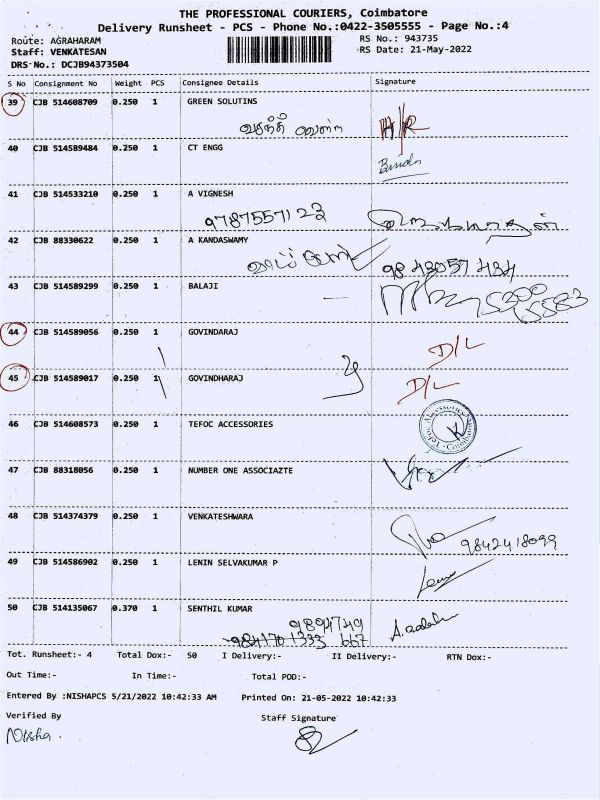 THE PROFESSIONAL COURIERS, Coimbatore
Delivery Runsheet - PCS - Phone No.:0422-3505555 - Page No.:4
Route: AGRAHARAM
RS No.: 943735
Staff: VENKATESAN
RS Date: 21-May-2022
DRS No.: DCJB94373504
S No Consignment No Weight PCS Consignee Details Signature
39 CJB 514608709 0.250 1 GREEN SOLUTINS
H/R
40 CJB 514589484 0.250 1 CT ENGG
41 CJB 514533210 0.250 1 A VIGNESH
9787557123
42 CJB 88330622 0.250 1 A KANDASWAMY
9843057434
43 CJB 514589299 0.250 1 BALAJI
44 CJB 514589056 0.250 1 GOVINDARAJ
D/L
45 CJB 514589017 0.250 1 GOVINDHARAJ
D/L
46 CJB 514608573 0.250 1 TEFOC ACCESSORIES
47 CJB 88318056 0.250 1 NUMBER ONE ASSOCIAZTE
48 CJB 514374379 0.250 1 VENKATESHWARA
9842418099
49 CJB 514586902 0.250 1 LENIN SELVAKUMAR P
50 CJB 514135067 0.370 1 SENTHIL KUMAR
9894749
667
Tot. Runsheet:- 4 Total Dox:- 50 I Delivery:- II Delivery:- RTN Dox:-
Out Time:- In Time:- Total POD:-
Entered By :NISHAPCS 5/21/2022 10:42:33 AM Printed On: 21-05-2022 10:42:33
Verified By Staff Signature
Nisha.